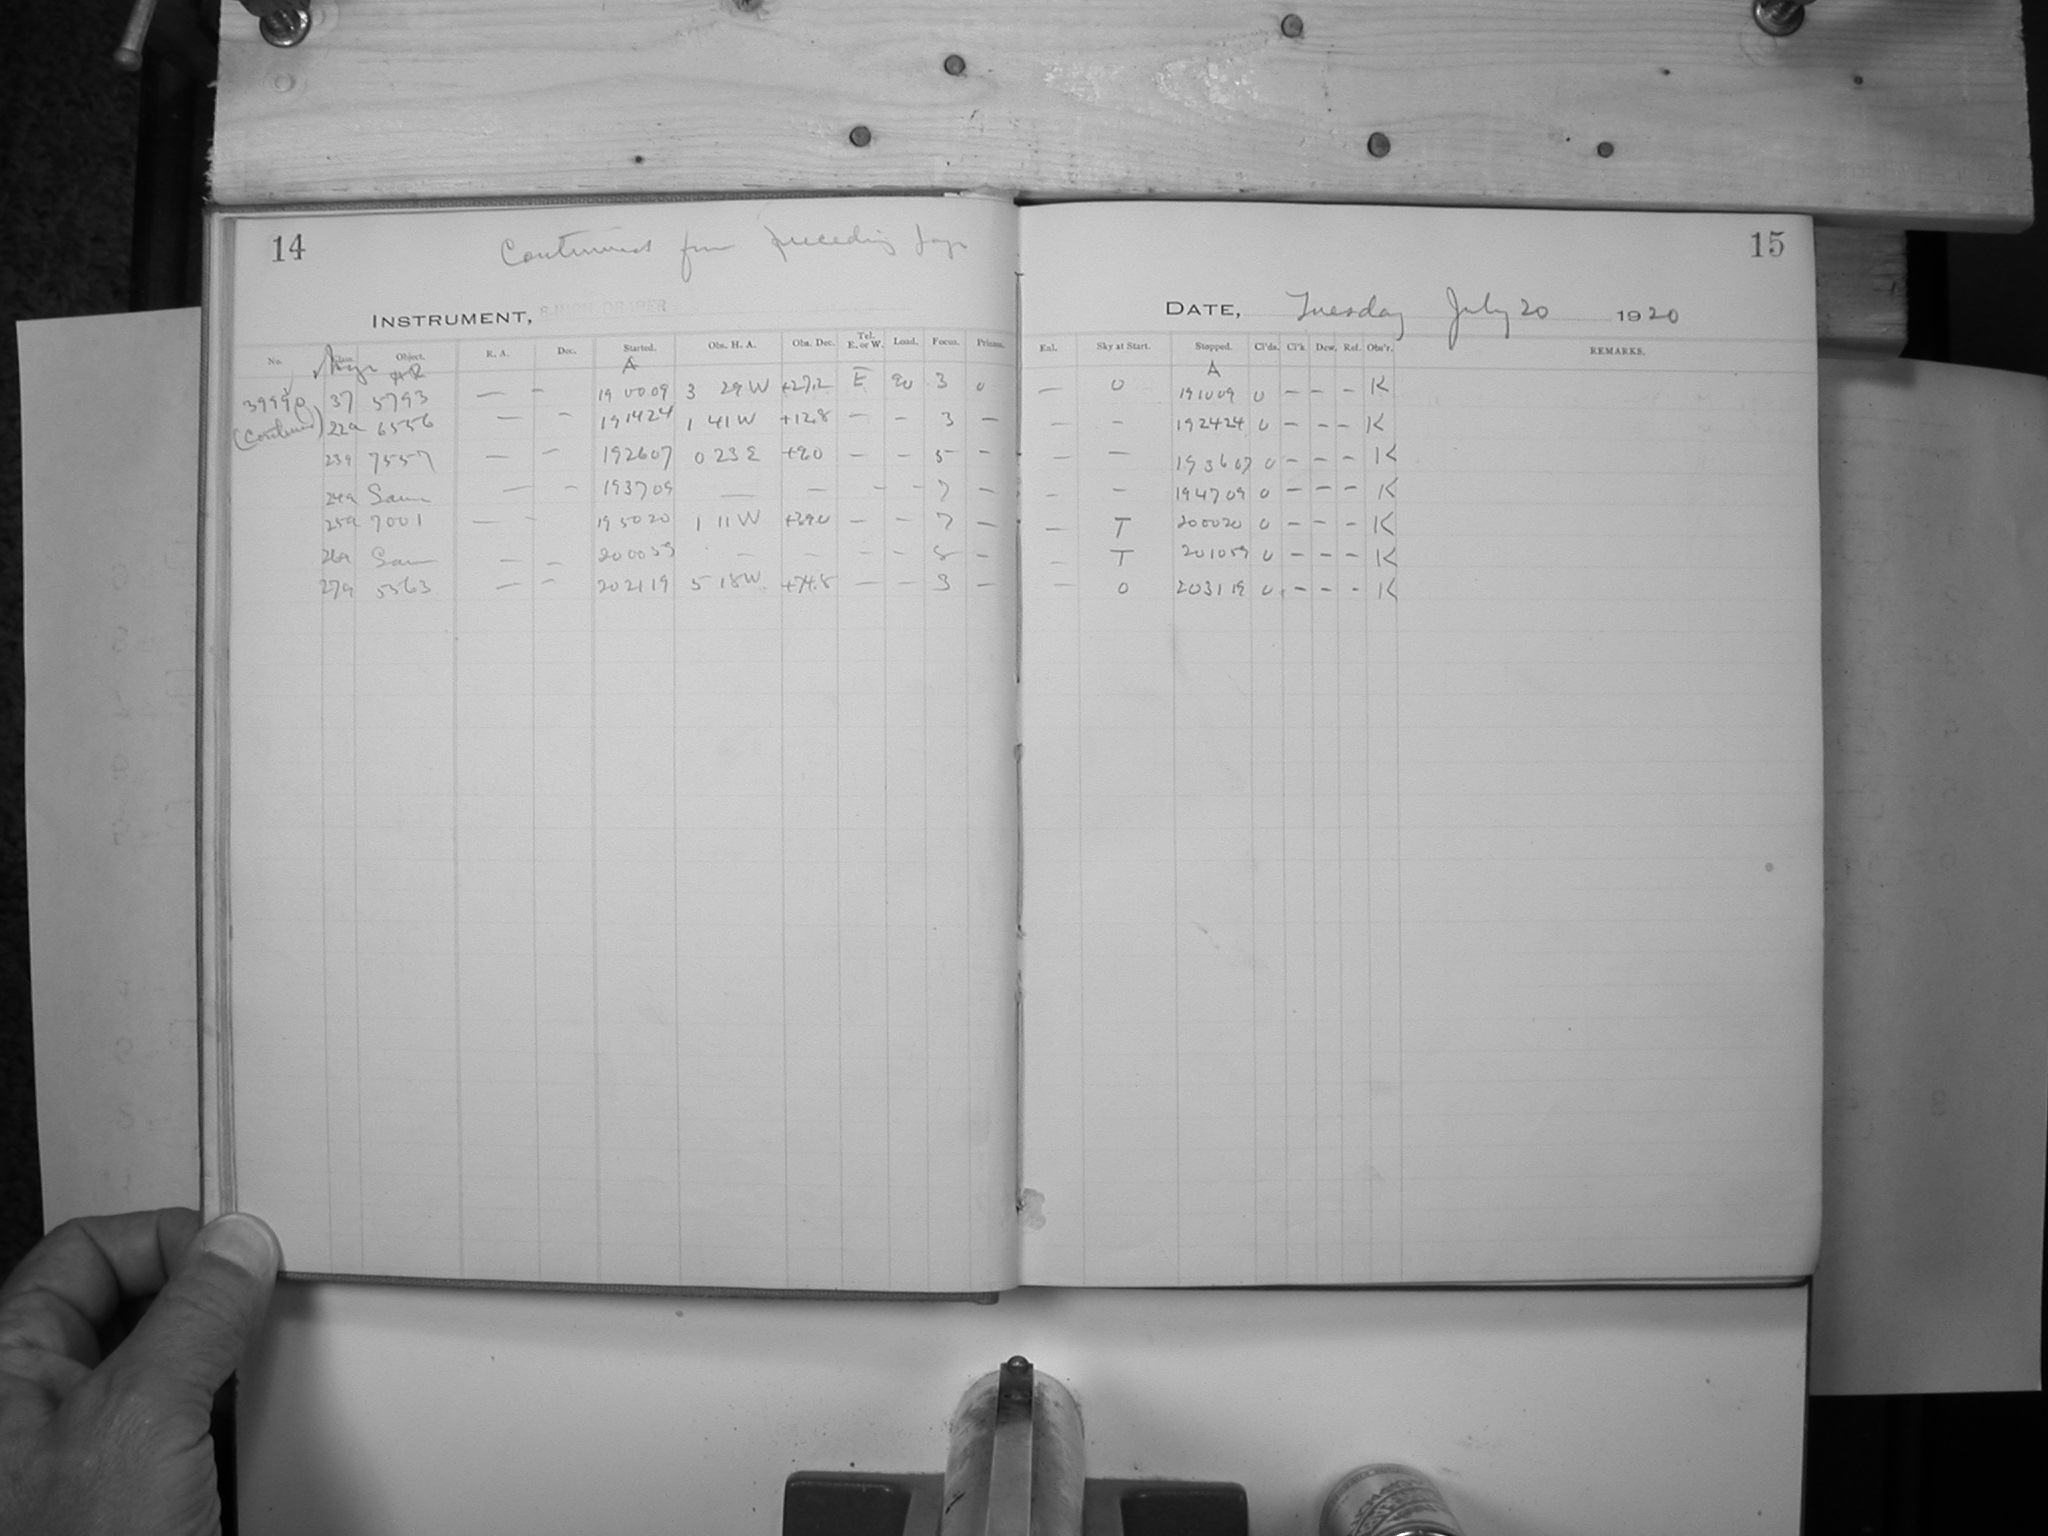 14
Continued from preceding page
15
INSTRUMENT, 8 INCH DRAPER
DATE, Tuesday July 20 1920
No. Object. R. A. Dec. Started. Obs. H. A. Obs. Dec. Tel. E. or W. Load. Focus. Prisms. Enl. Sky at Start. Stopped. Cl'ds. Cl'k Dew. Ref. Obs'r. REMARKS.
A A
37 5793 — — 19 00 09 3 29 W +27.2 E 90 3 0 — 0 19 10 09 0 – – – K
(Continued) 22a 6556 — — 19 14 24 1 41 W +12.8 — – 3 — — – 19 24 24 0 – – – K
23a 7557 — — 19 26 07 0 23 E +8.0 — – 5 – — — 19 36 07 0 – – – K
24a Same — – 19 37 09 — — – – 7 – – – 19 47 09 0 – – – K
25a 7001 — – 19 50 20 1 11 W +39.0 — – 7 — — T 20 00 20 0 – – – K
26a Same — – 20 00 59 — — – – 8 – – T 20 10 59 0 – – – K
27a 5563 — – 20 21 19 5 18 W +74.8 — – 3 — — 0 20 31 19 0 – – – K